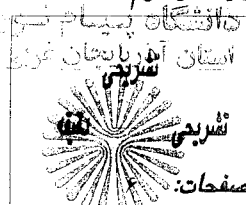 دانشگاه پیام نور
استان آذربایجان غربی
تشریحی
تشریحی
صفحات: